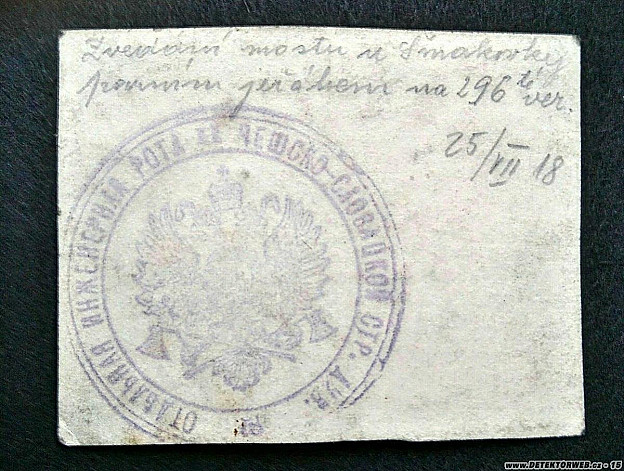 Zvedání mostu u Šmakovky
parním jeřábem na 296té ver.
25/VII 18
ОТДѢЛЬНАЯ ИНЖЕНЕРНАЯ РОТА ЧЕШСКО-СЛОВАЦКОЙ СТР. ДИВ.
www.DETEKTORWEB.cz